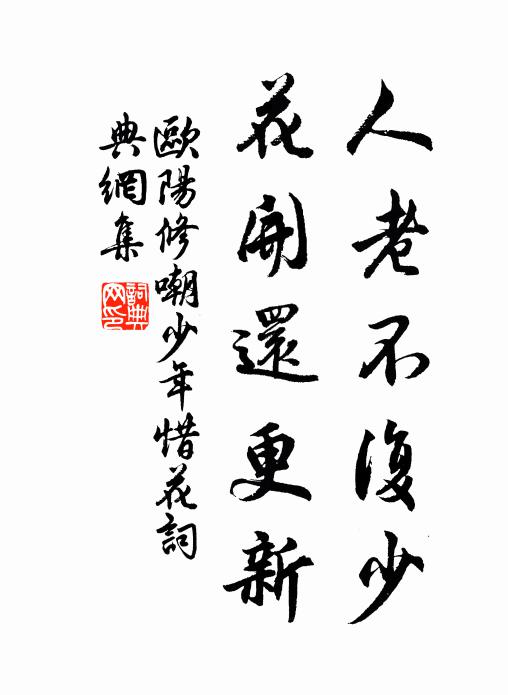 人老不復少
花開還更新
歐陽修嘲少年惜花詞
典網集
詞典网印